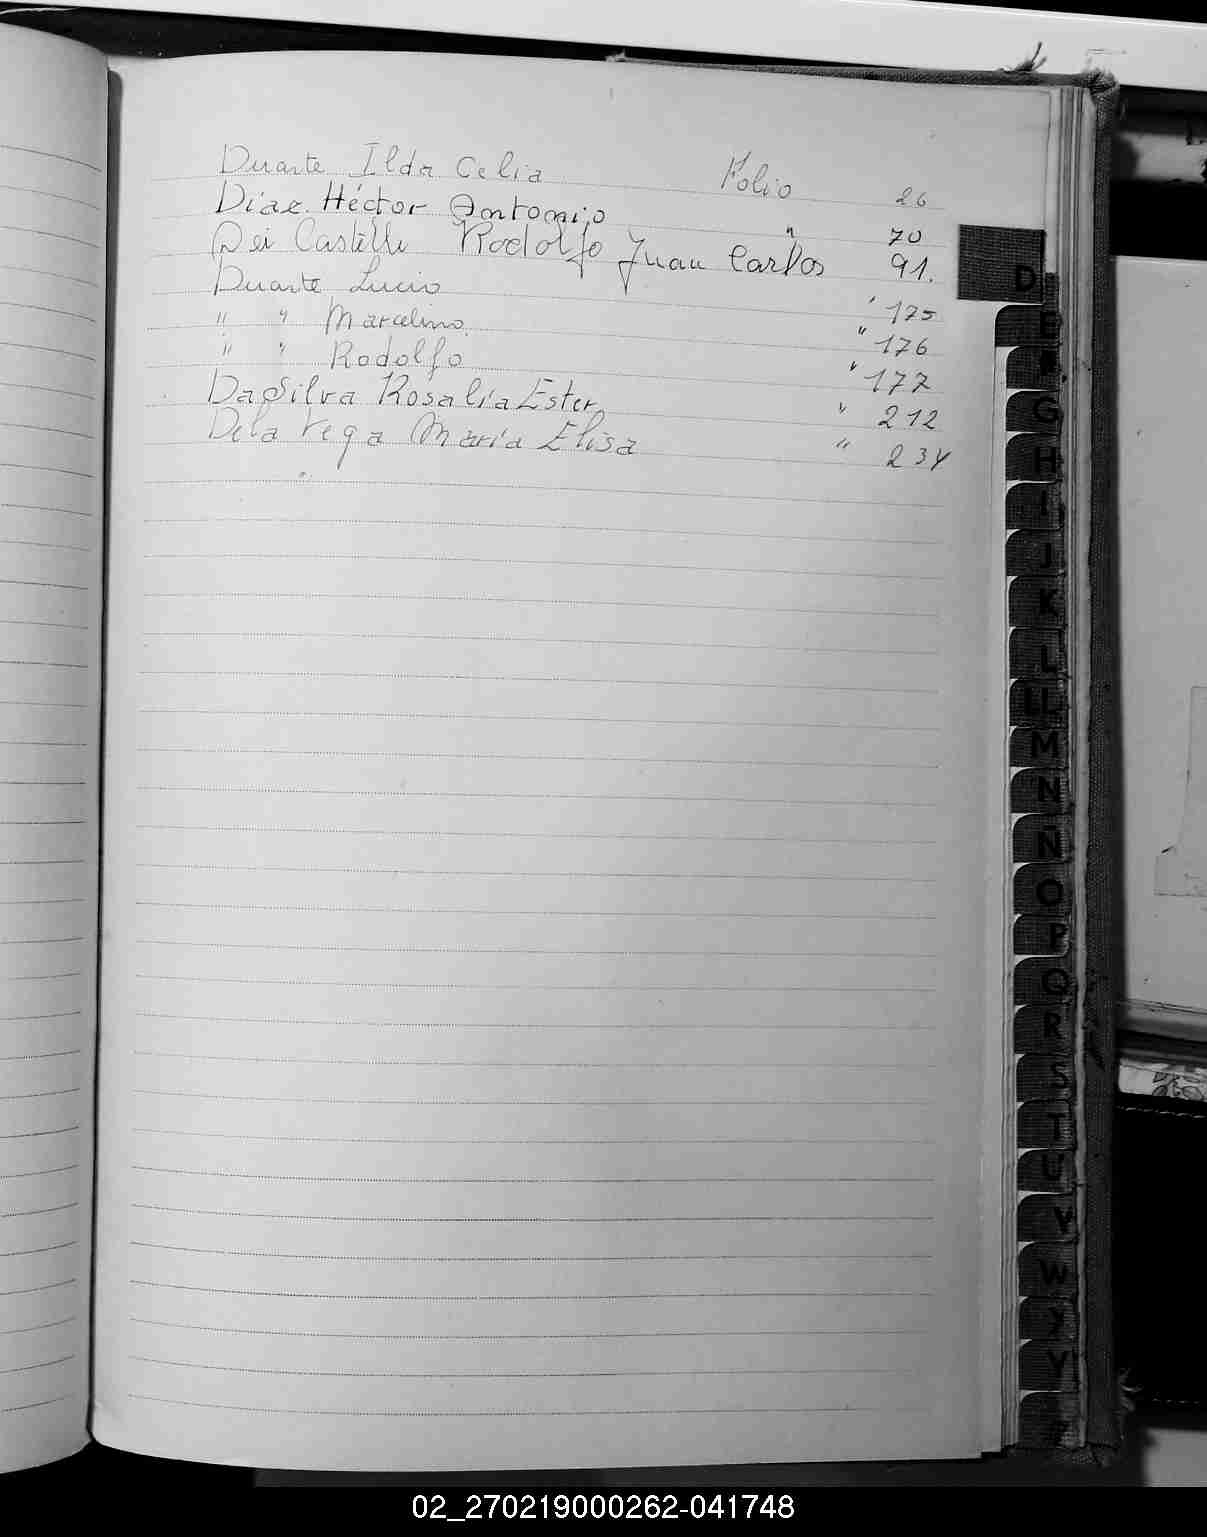 Duarte Ilda Celia Folio 26
Diaz Héctor Antonio " 70
Dei Castelli Rodolfo Juan Carlos 91.
Duarte Lucio " 175
" " Marcelino " 176
" " Rodolfo " 177
Da Silva Rosalía Ester " 212
De la Vega María Elisa " 234
D
E
F
G
H
I
J
K
L
LL
M
N
Ñ
O
P
Q
R
S
T
U
V
W
X
Y
Z
02_270219000262-041748